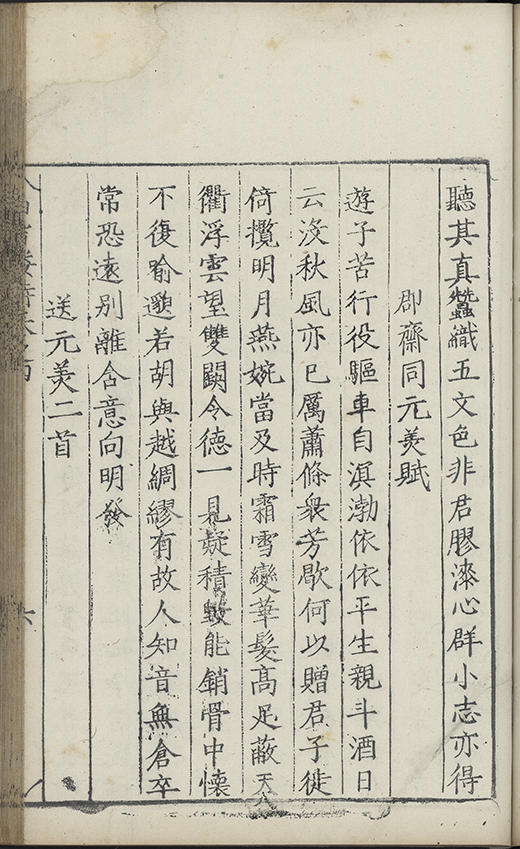 聽其真蠶織五文色非君膠漆心群小志亦得
郡齋同元美賦
遊子苦行役驅車自溟渤依依平生親斗酒日
云沒秋風亦已厲蕭條衆芳歇何以贈君子徙
倚攬明月燕婉當及時霜雪變華髮高足蔽天
衢浮雲望雙闕令德一見疑積毀能銷骨中懷
不復喻邈若胡與越綢繆有故人知音無倉卒
常恐遠别離含意向明發
送元美二首
六